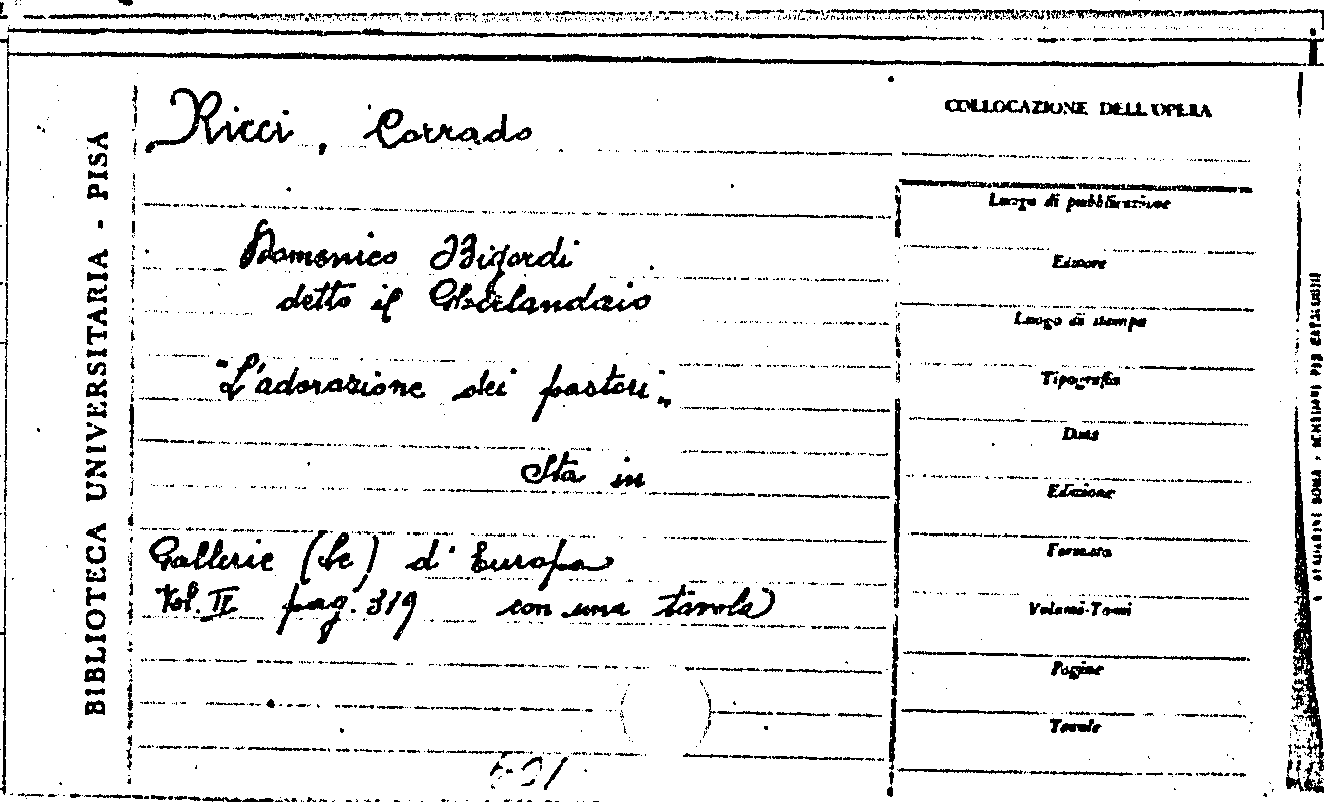 BIBLIOTECA UNIVERSITARIA - PISA
Ricci, Corrado
Domenico Bigordi
detto il Ghirlandaio
"L'adorazione dei pastori„
Sta in
Gallerie (Le) d'Europa
Vol. II pag. 319 con una tavola
COLLOCAZIONE DELL'OPERA
Luogo di pubblicazione
Editore
Luogo di stampa
Tipografia
Data
Edizione
Formato
Volumi-Tomi
Pagine
Tavole
STADERINI ROMA - SCHEDONI PER CATALOGHI